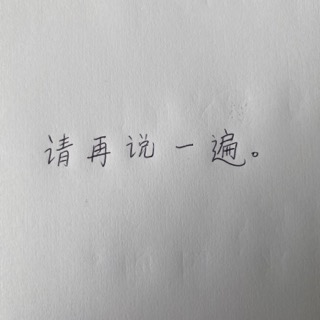 请再说一遍。